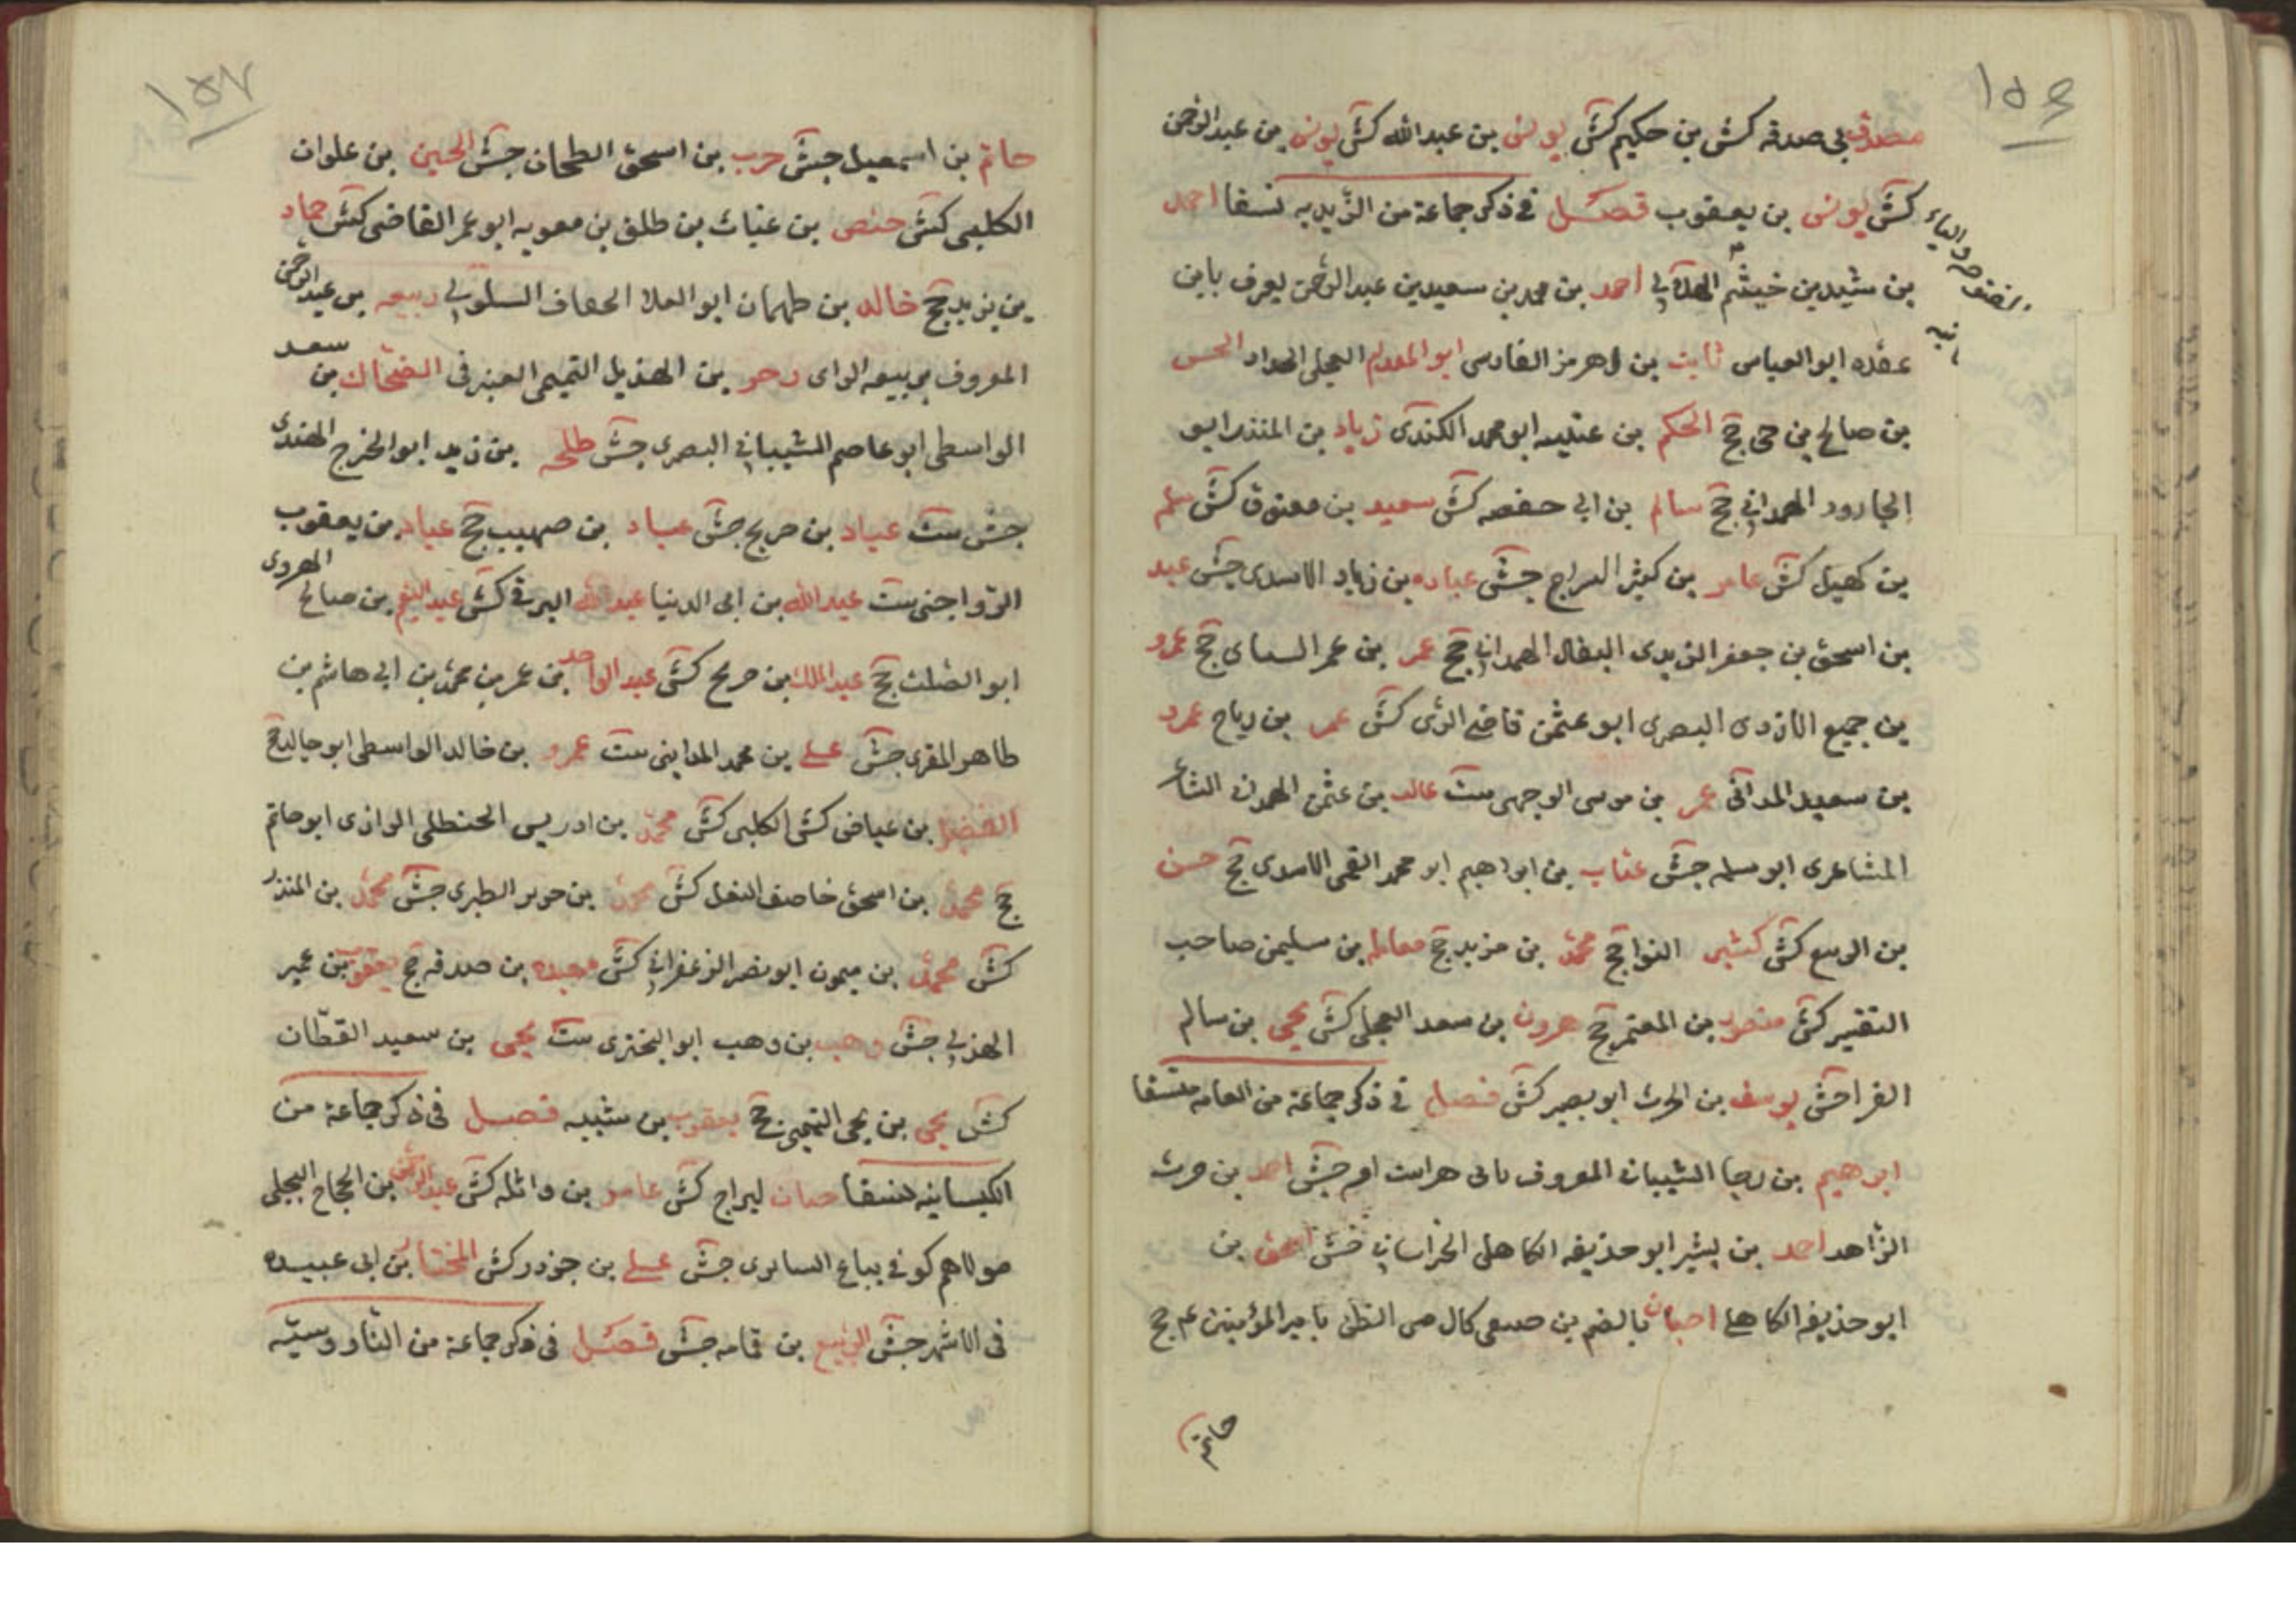 ١٥٦
مصدق بن صدقه كش بن حكيم كش يونس بن عبدالله كش يونس بن عبدالرحمن
كش يونس بن يعقوب فصل في ذكر جماعة من الزيديه نسقا احمد
بن شيد بن خيثم الهلالي احمد بن محمد بن سعيد بن عبدالرحمن يعرف بابن
عقده ابو العباس ثابت بن هرمز الفارسي ابو المقدام العجلي الحداد الحسن
بن صالح بن حي جج الحكم بن عتيبه ابو محمد الكندي زياد بن المنذر ابو
الجارود الهمداني جج سالم بن ابي حفصه كش سعيد بن معتوق كش سلمه
بن كهيل كش عامر بن كثير السراج جش عباده بن زياد الاسدي جش عبد
بن اسحق بن جعفر الزيدي البقال الهمداني جج عمر بن عمر السماى جج عمرو
بن جميع الازدي البصري ابو عثمن قاضي الري كش عمر بن رياح عمرو
بن سعيد المدائني عمر بن موسى الوجهي ست غالب بن عثمن الهمداني الشاعر
المشاعرى ابو سلمه جش عتاب بن ابراهيم ابو محمد القمى الاسدي جج حسن
بن الربيع كش كثير النوا جج محمد بن مزيد جج معالم بن سليمن صاحب
التفسير كش منصور بن المعتمر جج هرون بن سعد العجلي كش يحيى بن سالم
الفرا جش يوسف بن الحرث ابو بصير كش فصل في ذكر جماعة من العامه نسقا
ابرهيم بن رجا الشيباني المعروف بابن هراست امه جش احمد بن حرث
الزاهد احمد بن بشير ابو حذيفه الكاهلي الخراساني جش اسحق بن
ابو حذيفه الكاهلي احيان بالضم بن صيفي كال من النظر بامير المؤمنين عم جج
حاتم
١٥٧
حاتم بن اسمعيل جش حرب بن اسحق الطحان جش الحسين بن علوان
الكلبي كش حفص بن غياث بن طلق بن معويه ابو عمر القاضي كش حماد
بن يزيد جج خالد بن طهمان ابو العلا الخفاف السلولي ربيعه بن عبدالرحمن
المعروف بربيعه الراى زحر بن الهذيل التميمي العنبرى الضحاك بن سعد
الواسطي ابو عاصم الشيباني البصري جش طلحه بن زيد ابو الخزرج الهندي
جش ست عباد بن جريح جش عباد بن صهيب جج عباد بن يعقوب
الرواجني ست عبدالله بن ابى الدنيا عبدالله البرقي كش عبدالسلم بن صالح الهروى
ابو الصلت جج عبدالملك بن جريح كش عبدالواحد بن عمر بن محمد بن ابي هاشم بن
طاهر المقرى جش على بن محمد المدايني ست عمرو بن خالد الواسطي ابو خالد جج
الفضيل بن عياض كش الكلبى كش محمد بن ادريس الحنظلي الرازى ابو حاتم
جج محمد بن اسحق خاصف النعل كش محمد بن جرير الطبرى جش محمد بن المنذر
كش محمد بن ميمون ابو نصر الزعفراني كش مسعده بن صدقه جج يعقوب بن عمير
الهذلي جش وهب بن وهب ابو البختري ست يحيى بن سعيد القطان
كش يحيى بن يحيى التميمي جج يعقوب بن شيبه فصل في ذكر جماعة من
الكيسانيه نسقا حيان السراج كش عامر بن واثله كش عبدالرحمن بن الحجاج البجلي
مولاهم كوفي بياع السابرى جش على بن حزور كش المختار بن ابى عبيده
في الاشهر جش الربيع بن قامه جش فصل في ذكر جماعة من الناووسيه